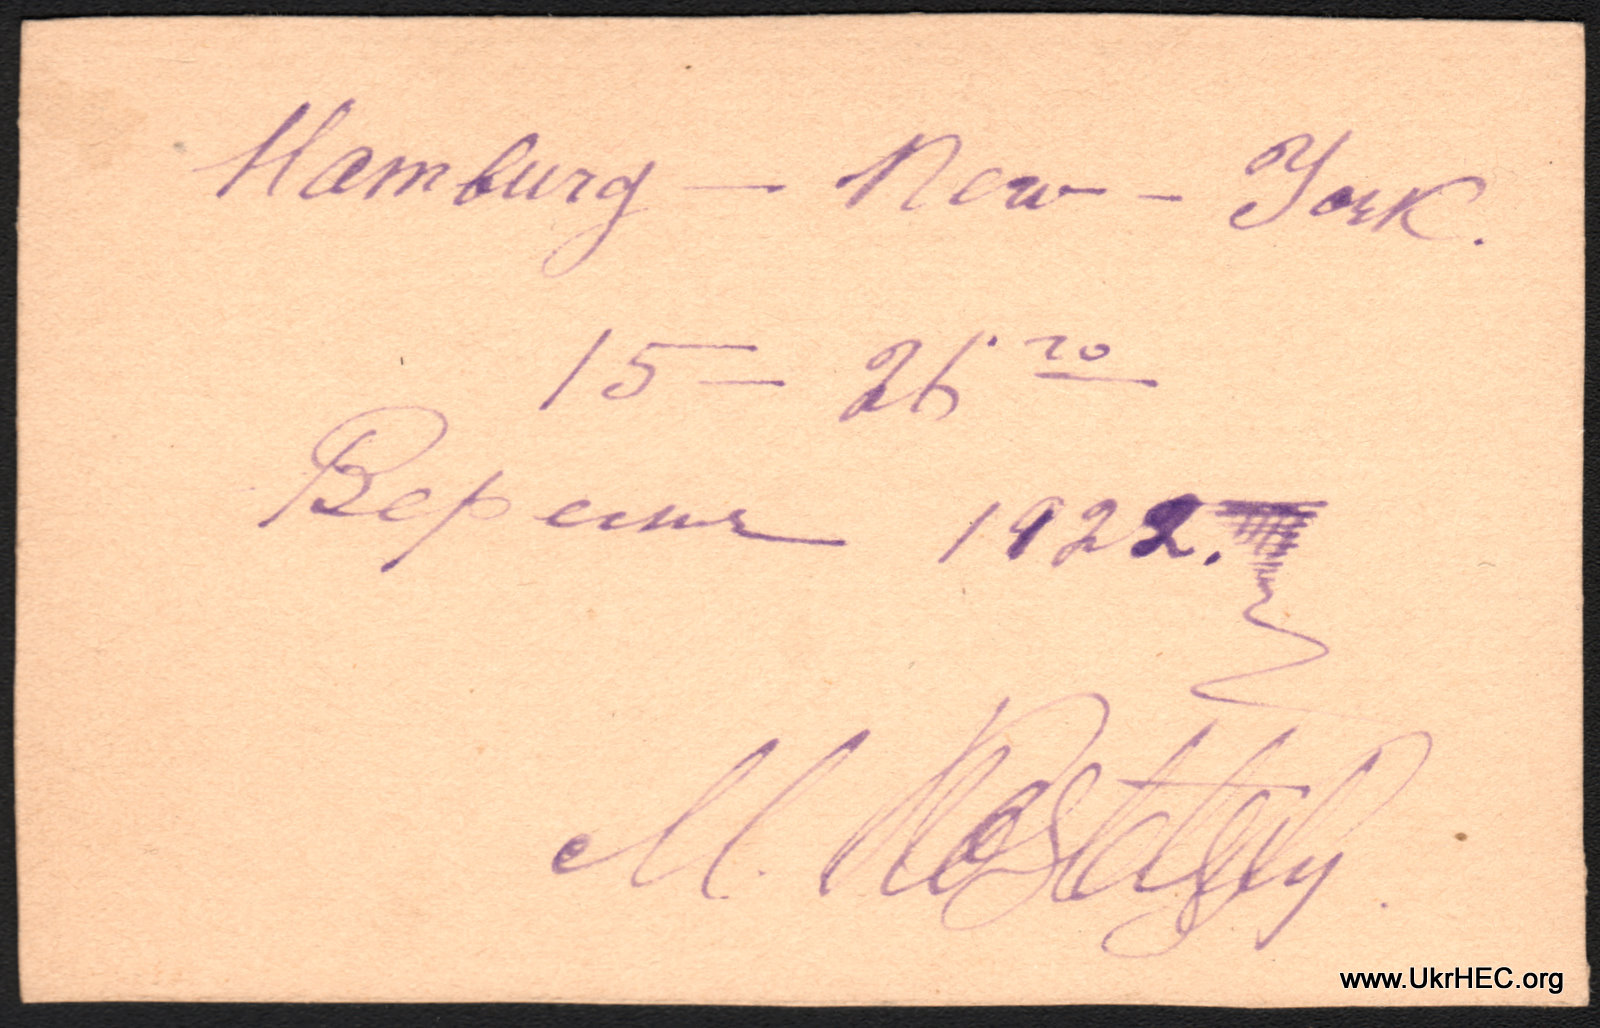 Hamburg — New - York.
15 — 26 го
Вересня 1922.
M.
www.UkrHEC.org